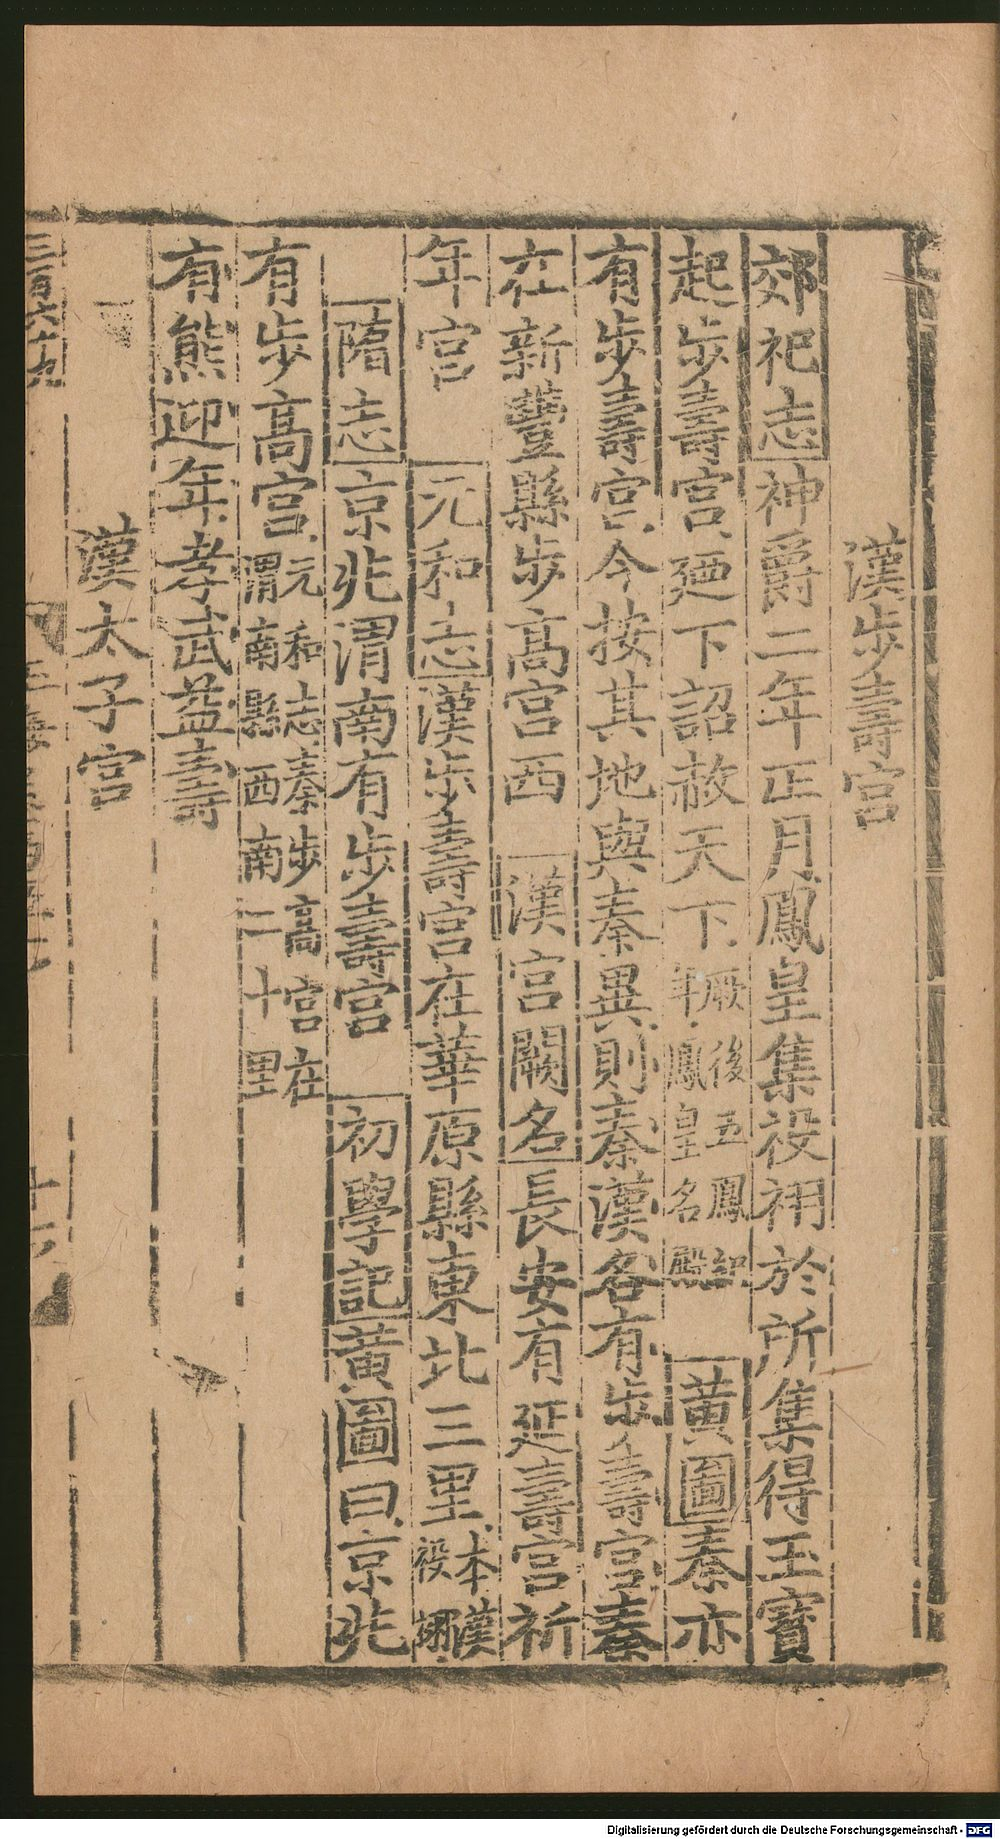 漢步壽宮
郊祀志神爵二年正月鳳皇集祋祤於所集得玉寶
起步壽宮廼下詔赦天下厥後五鳳年鳳皇名殿黄圖秦亦
有步壽宮今按其地與秦異則秦漢各有步壽宮秦
在新豐縣步高宮西漢宮闕名長安有延壽宮祈
年宮元和志漢步壽宮在華原縣東北三里本漢祋祤
隋志京兆渭南有步壽宮初學記黄圖曰京兆
有步高宮元和志秦步高宮在渭南縣西南二十里
有熊迎年孝武益壽
漢太子宮
三百六十九
Digitalisierung gefördert durch die Deutsche Forschungsgemeinschaft - DFG